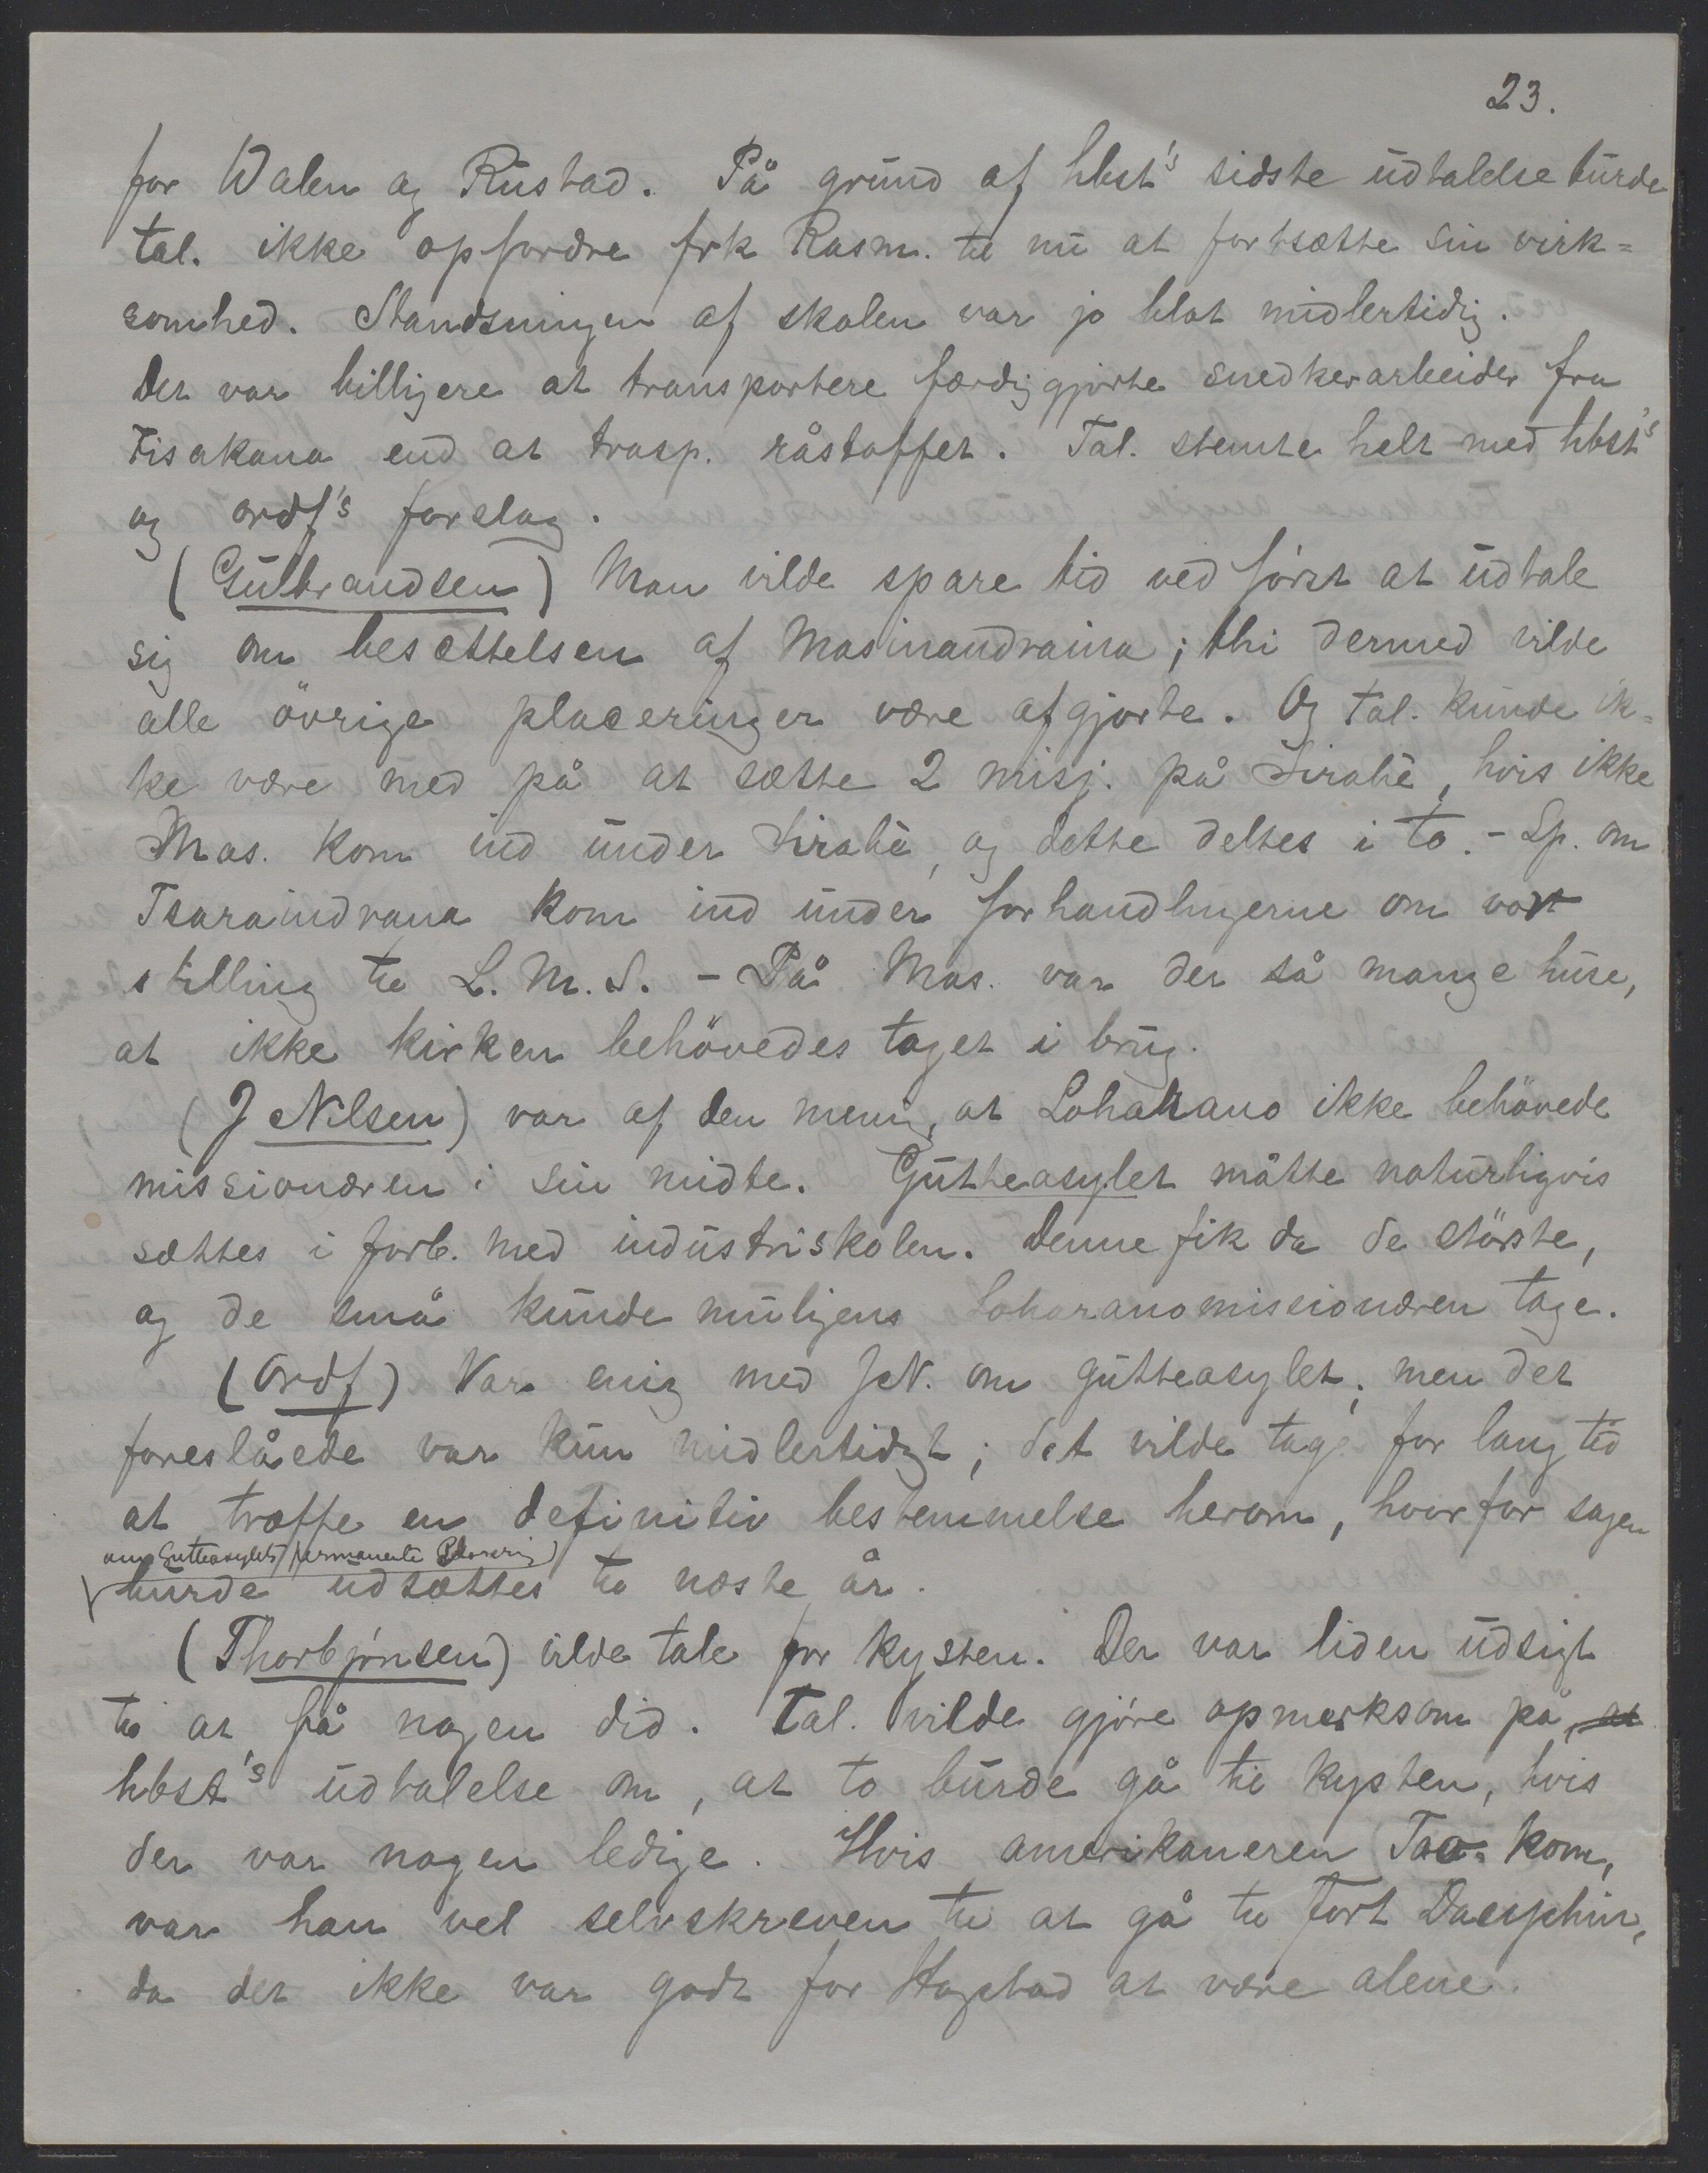 23.
for Walen og Rustad. På grund af hbst's sidste udtalelse turde
tal. ikke opfordre frk Rasm. til nu at fortsætte sin virk=
somhed. Standsningen af skolen var jo blot midlertidig.
Det var billigere at transportere færdiggjorte snedkerarbeider fra
Fisakana end at trasp. råstoffet. Tal. stemte helt med hbst's
og ordf's forslag.
(Gulbrandsen) Man vilde spare tid ved først at udtale
sig om besættelsen af Masinandraina; thi dermed vilde
alle övrige placeringer være afgjorte. Og tal. kunde ik=
ke være med på at sætte 2 misj. på Sirabè, hvis ikke
Mas. kom ind under Sirabè, og dette deltes i to. - Sp. om
Tsaraindrana kom ind under forhandlingerne om vort
stilling til L. M. S. - På Mas. var der så mange huse,
at ikke kirken behövedes taget i brug.
(J Nilsen) var af den mening, at Loharano ikke behövede
missionæren i sin midte. Gutteasylet måtte naturligvis
sættes i forb. med industriskolen. Denne fik da de störste,
og de små kunde muligens Loharanomissionæren tage.
(Ordf) Var enig med JN. om gutteasylet; men det
foreslåede var kun midlertidigt; det vilde tage for lang tid
at træffe en definitiv bestemmelse herom, hvorfor sagen
om Gutteasylets permanente Placering
burde udsættes til næste år.
(Thorbjørnsen) vilde tale for kysten. Der var liden udsigt
til at få nogen did. Tal. vilde gjøre opmerksom på, at
hbst's udtalelse om, at to burde gå til kysten, hvis
der var nogen ledige. Hvis amerikaneren kom,
var han vel selvskreven til at gå til Fort Dauphin,
da det ikke var godt for Hogstad at være alene.